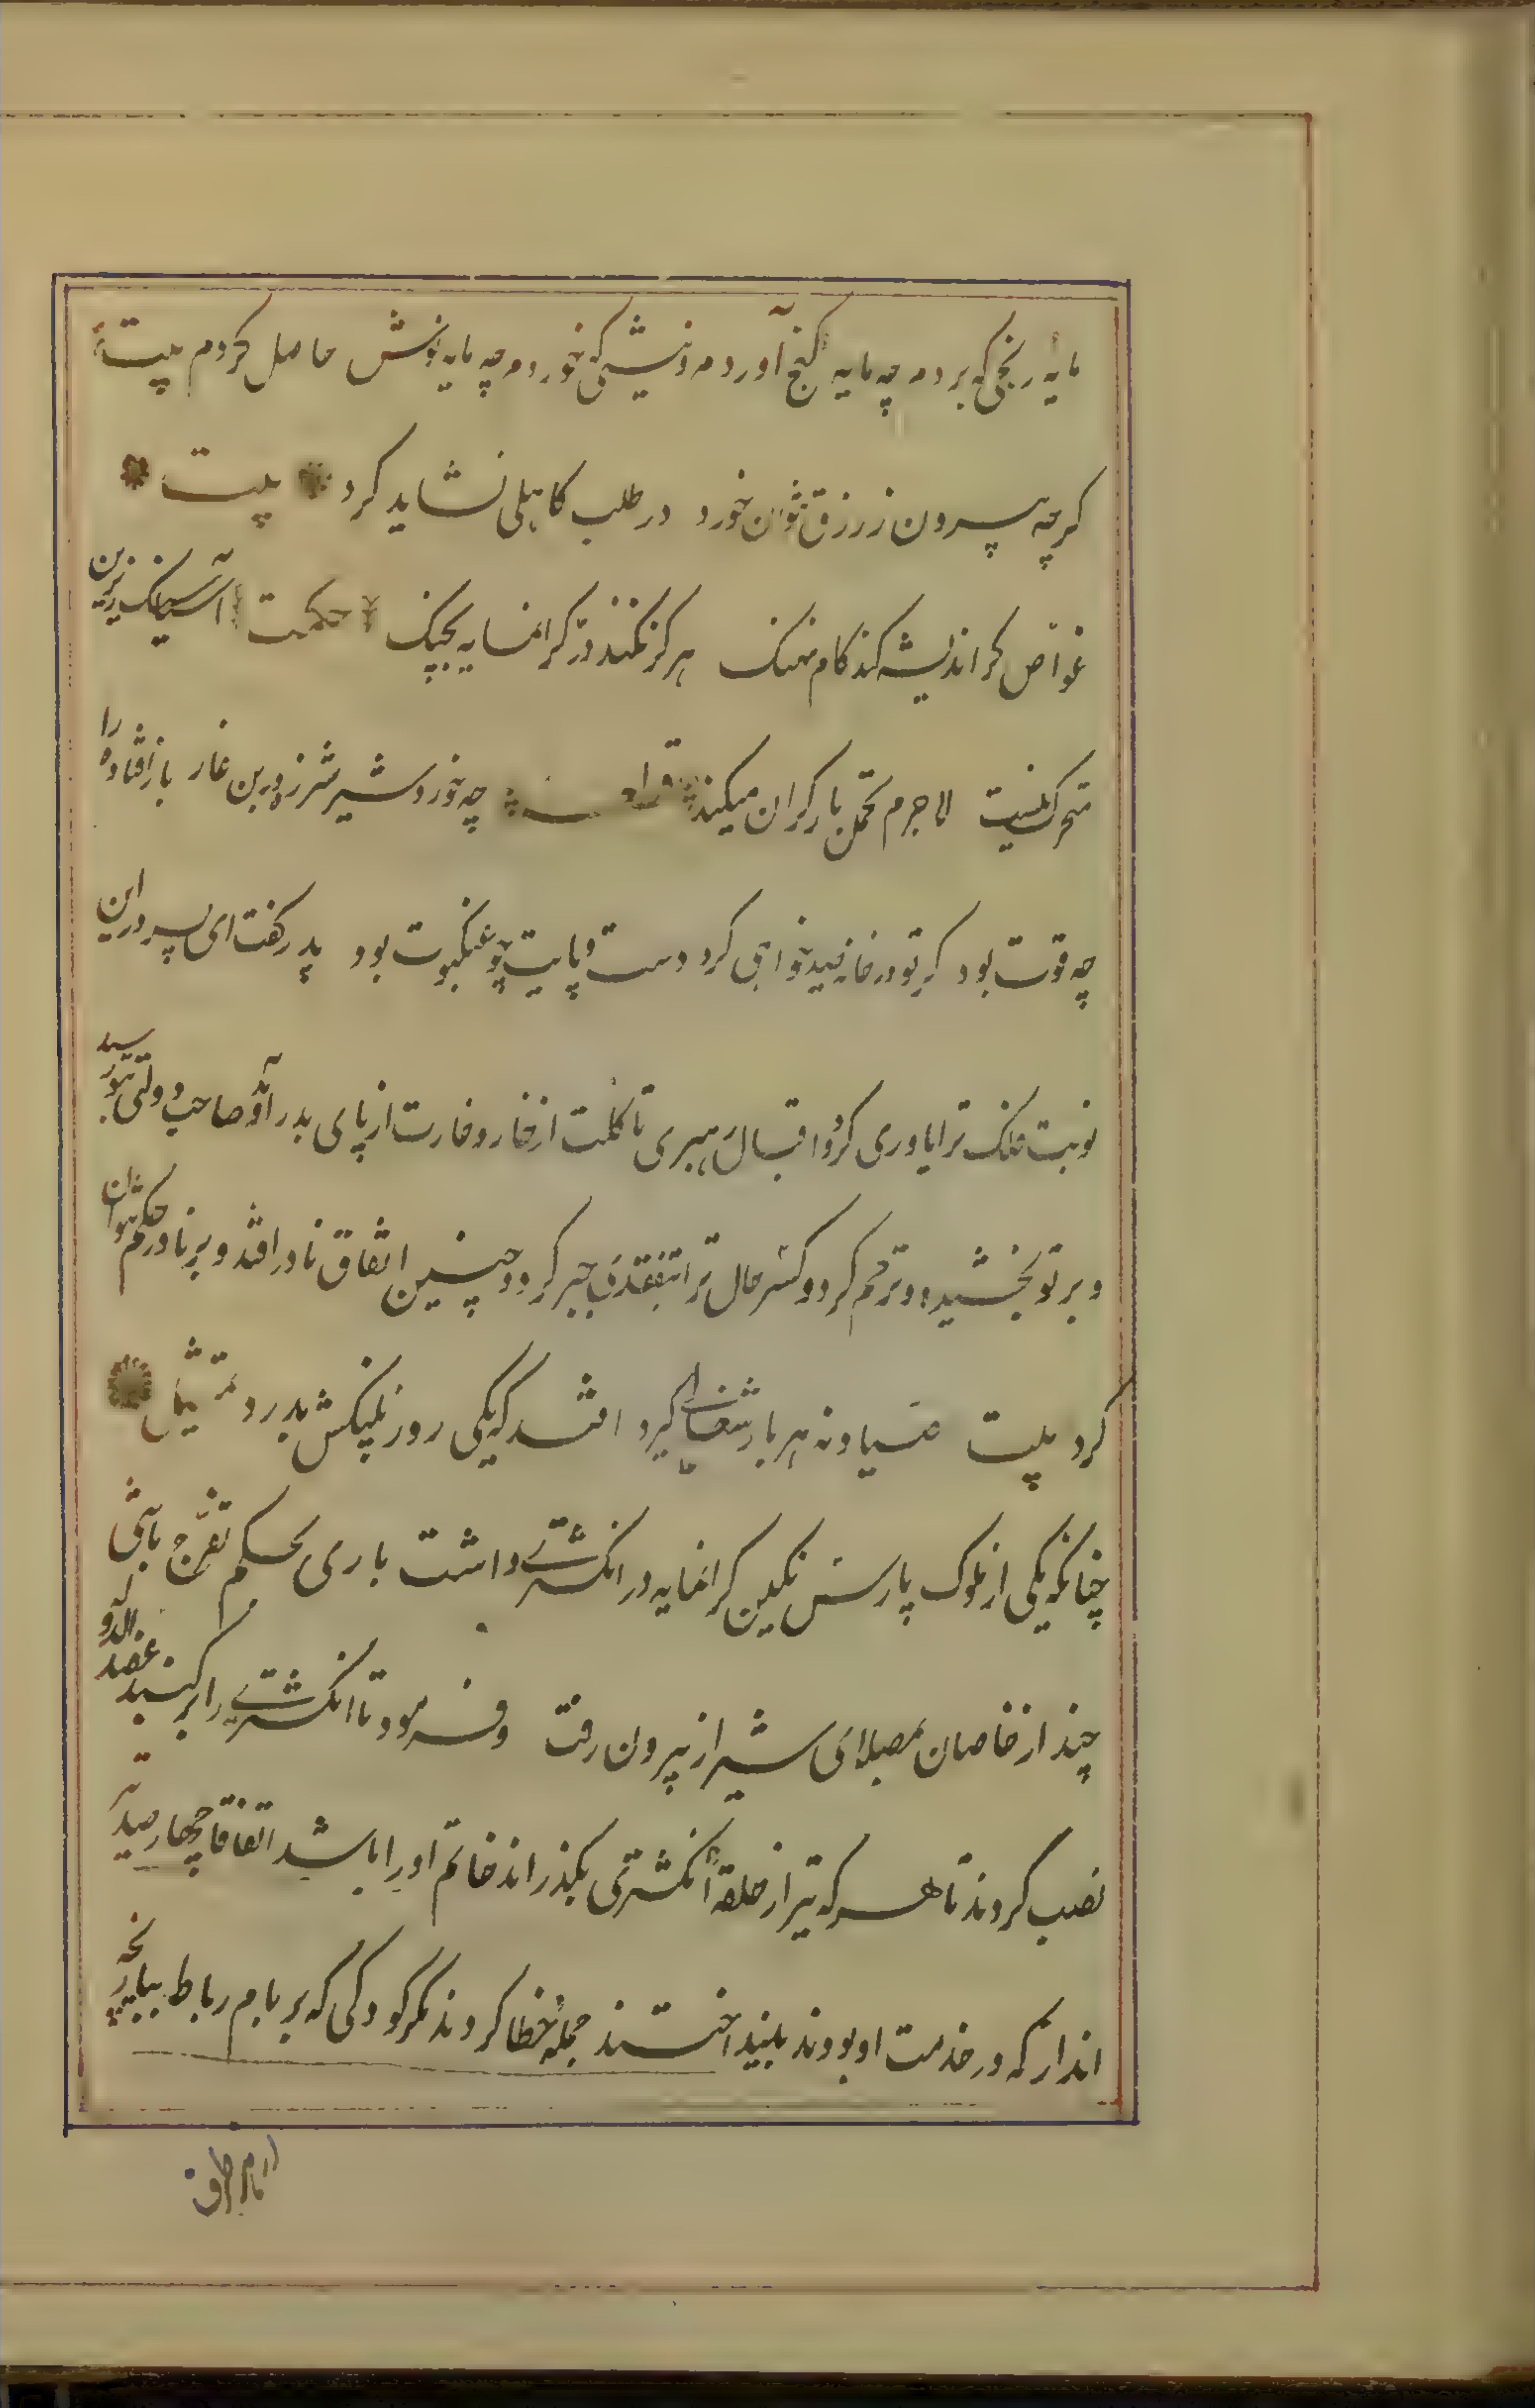 مایه رنجی که بردم چه مایه گنج آوردم و نیشی که خوردم چه مایه نوش حاصل کردم بیت
گرچه بیرون ز رزق نتوان خورد در طلب کاهلی نشاید کرد بیت
غواص گر اندیشه کند کام نهنگ هرگز نکند در گرانمایه بچنگ حکمت آسیاسنگ زیرین
متحرک نیست لاجرم تحمل بار گران میکند چه خورد شیر شرزه در بن غار باز افتاده را
چه قوت بود گر تو در خانه صید خواهی کرد دست و پایت چو عنکبوت بود پدر گفت ای پسر درین
نوبت فلک ترا یاوری کرد و اقبال رهبری تا گلت از خار و خارت از پای بدر آمد و صاحب دولتی بتو رسید
و بر تو بخشید و ترحم کرد و کسر حال ترا بتفقدی جبر کرد و چنین اتفاق نادر افتد و بر نادر حکم نتوان
کرد بیت صیاد نه هر بار شغالی گیرد افتد که یکی روز پلنگش بدرد تمثیل
چنانکه یکی از ملوک پارس نگین گرانمایه در انگشتری داشت باری بحکم تفرج با تنی
چند از خاصان بمصلای شیراز بیرون رفت و فرمود تا انگشتری را بر گنبد عضد الدوله
نصب کردند تا هر که تیر از حلقه انگشتری بگذراند خاتم او را باشد اتفاقا چهار صد تیر
انداز که در خدمت او بودند بینداختند جمله خطا کردند مگر کودکی که بر بام رباط ببازیچه